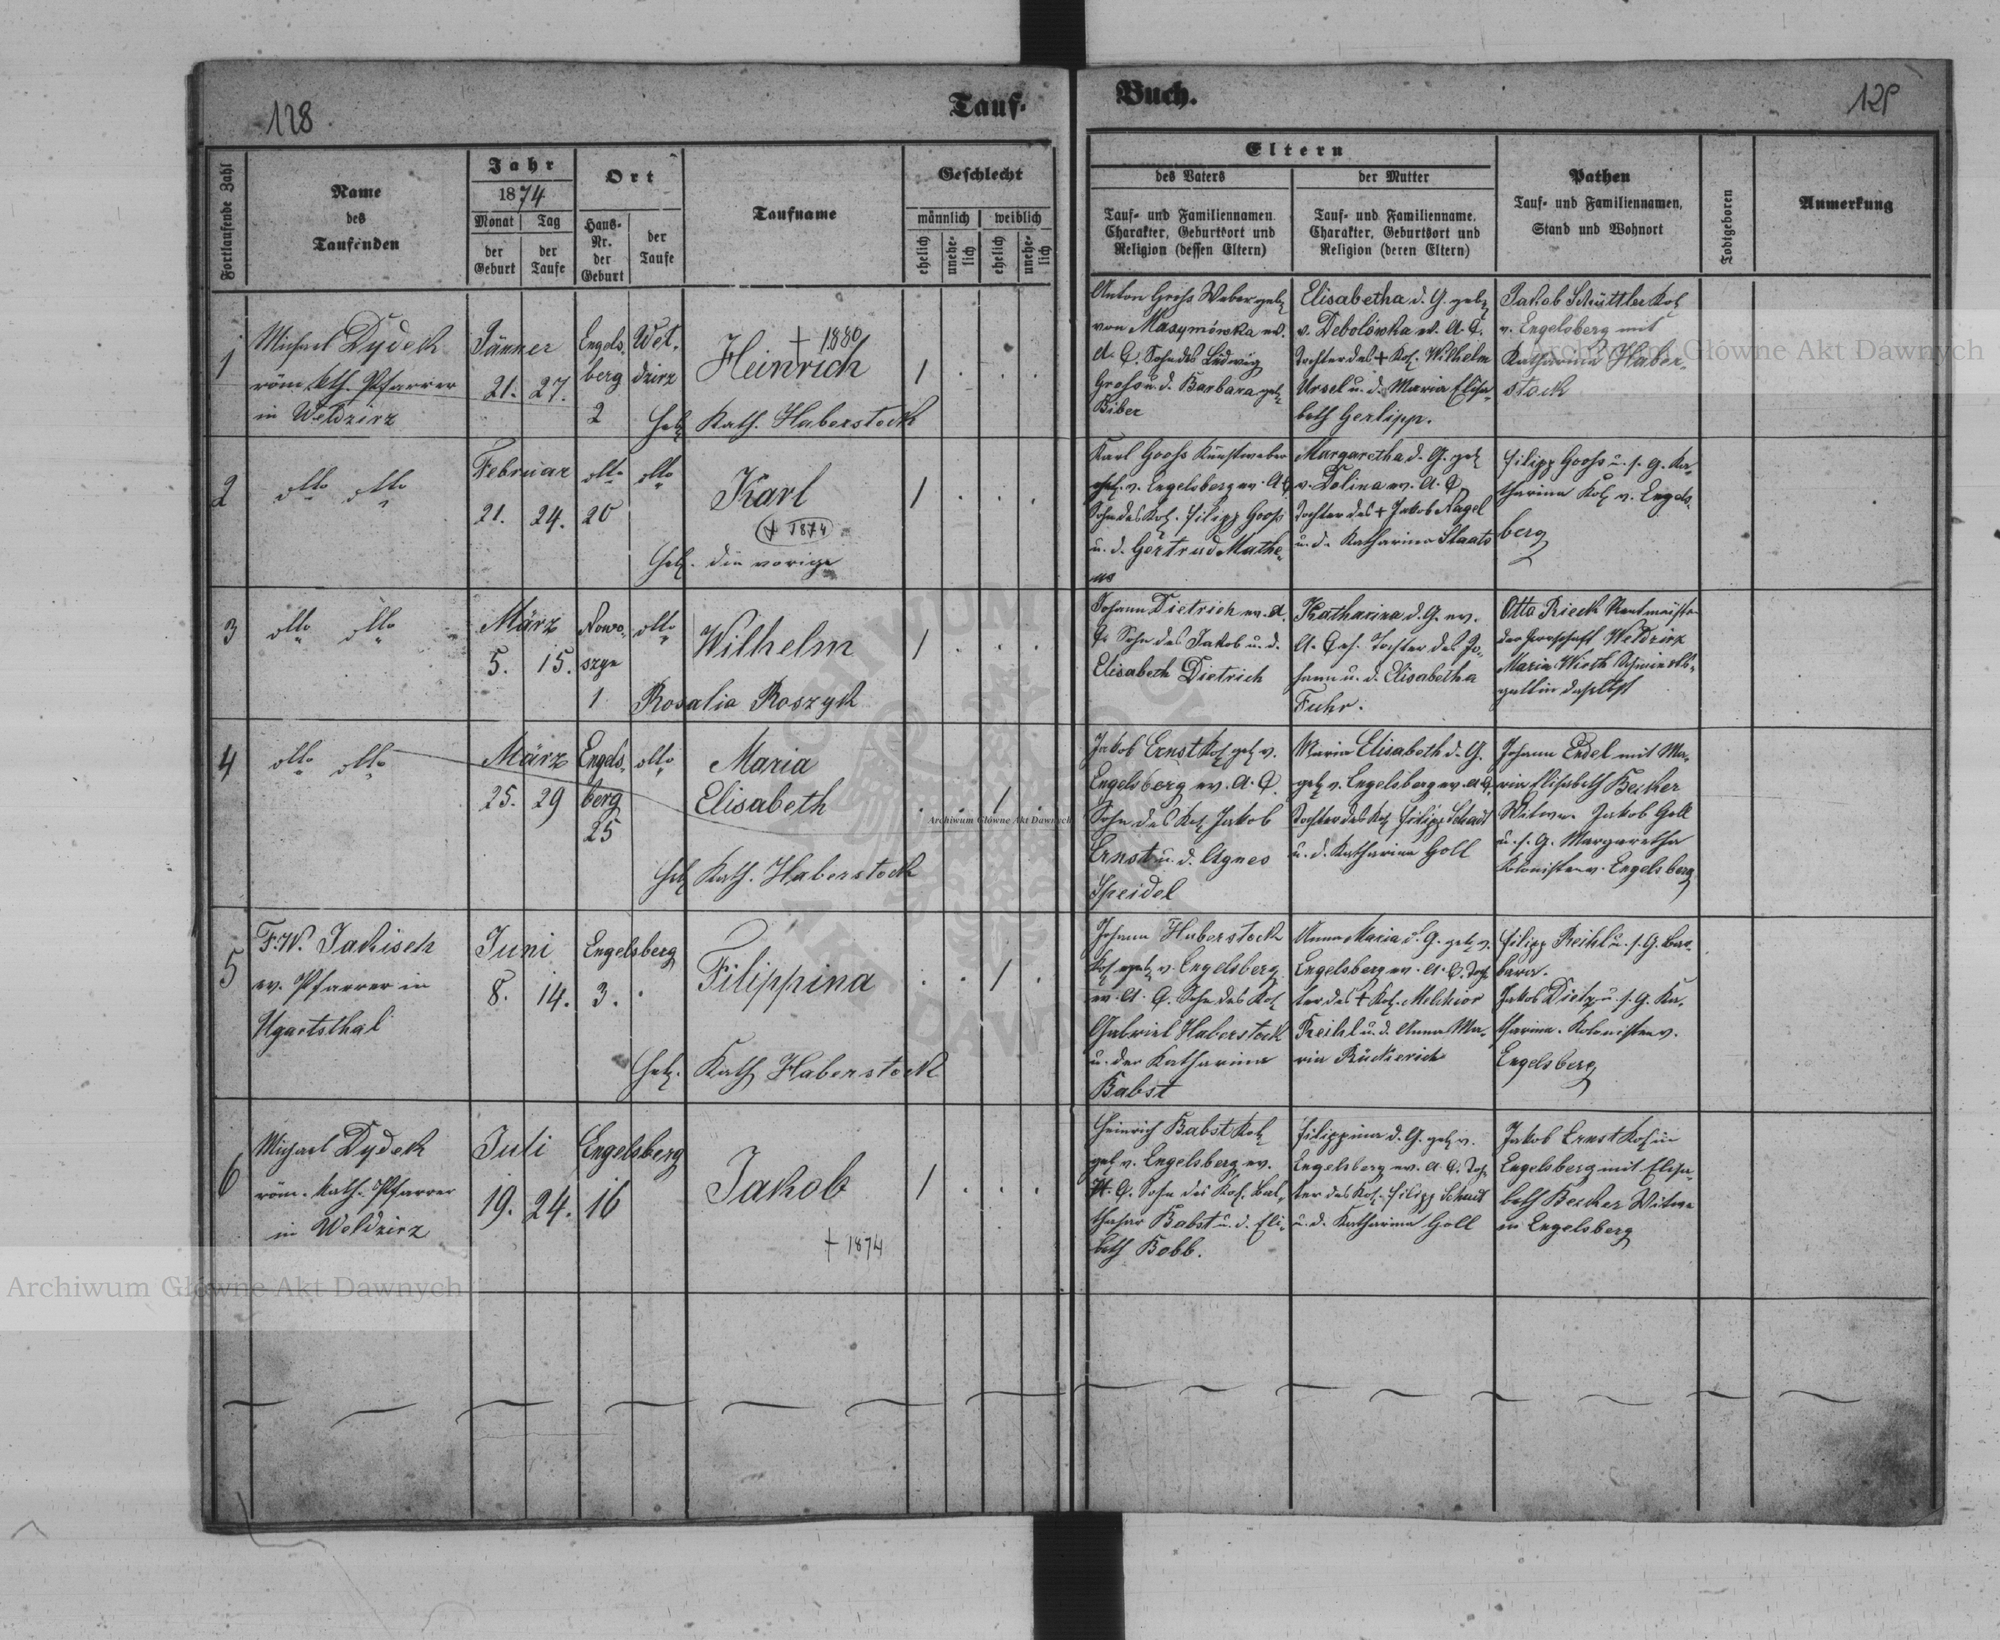 128
Tauf-
Buch.
129
Fortlaufende Zahl
Name
des
Taufenden
Jahr
1874
Monat
Tag
der
Geburt
der
Taufe
Ort
Haus-
Nr.
der
Geburt
der
Taufe
Taufname
Geschlecht
männlich
weiblich
ehelich
unehe-
lich
ehelich
unehe-
lich
Eltern
des Vaters
der Mutter
Tauf- und Familiennamen,
Charakter, Geburtsort und
Religion (dessen Eltern)
Tauf- und Familienname,
Charakter, Geburtsort und
Religion (deren Eltern)
Pathen
Tauf- und Familiennamen,
Stand und Wohnort
Todtgeboren
Anmerkung
1
Michael Dydek
röm. kth. Pfarrer
in Weldzirz
Jänner
21. 27.
Engels-
berg
2
Wel-
dzirz
+ 1880
Heinrich
Heb. Kath. Haberstock
1 . . .
Anton Grohs Weber geb.
von Masymówka ev.
A. C. Sohn des Ludwig
Grohs u. d. Barbara geb.
Biber
Elisabetha d. G. geb.
v. Debolówka ev. A. C.
Tochter des + Kol. Wilhelm
Ursel u. d. Maria Elisa-
beth Gerlipp.
Jakob Schüttler Kol.
v. Engelsberg mit
Katharina Haber-
stock
2
dtto dtto
Februar
21. 24.
dtto
20
dtto
Karl
+ 1874
Heb. die vorige
1 . . .
Karl Goohs Kunstweber
geb. v. Engelsberg ev. A. C.
Sohn des Kol. Filipp Goohs
u. d. Gertrud Mathe-
us
Margaretha d. G. geb.
v. Dolina ev. A. C.
Tochter des + Jakob Nagel
u. d. Katharina Staats
Filipp Goohs u. s. G. Ka-
tharina Kol. v. Engels-
berg
3
dtto dtto
März
5. 15.
Nowo-
szyn
1
dtto
Wilhelm
Rosalia Roszyk
1 . . .
Johann Dietrich ev. A.
C. Sohn des Jakob u. d.
Elisabeth Dietrich
Katharina d. G. ev.
A. C. Tochter des Jo-
hann u. d. Elisabetha
Fuhr.
Otto Rieck Rentmeister
der Herrschaft Weldzirz
Maria Wirth Schmieds-
gattin daselbst
4
dtto dtto
März
25. 29
Engels-
berg
25
dtto
Maria
Elisabeth
Heb. Kath. Haberstock
. . 1 .
Jakob Ernst Kol. geb. v.
Engelsberg ev. A. C.
Sohn des Kol. Jakob
Ernst u. d. Agnes
Speidel
Maria Elisabeth d. G.
geb. v. Engelsberg ev. A. C.
Tochter des Kol. Filipp Schadt
u. d. Katharina Goll
Johann Endel mit Ma-
ria Elisabeth Becker
Witwe. Jakob Goll
u. s. G. Margaretha
Kolonisten v. Engelsberg
5
F. W. Jackisch
ev. Pfarrer in
Ugartsthal
Juni
8. 14.
Engelsberg
3.
Filippina
Heb. Kath. Haberstock
. . 1 .
Johann Haberstock
Kol. geb. v. Engelsberg
ev. A. C. Sohn des Kol.
Gabriel Haberstock
u. der Katharina
Babst
Anna Maria d. G. geb. v.
Engelsberg ev. A. C. Toch-
ter des + Kol. Melchior
Reihl u. d. Anna Ma-
ria Rückerich
Filipp Reihl u. s. G. Bar-
bara.
Jakob Dietz u. s. G. Ka-
tharina. Kolonisten v.
Engelsberg
6
Michael Dydek
röm. kath. Pfarrer
in Weldzirz
Juli
19. 24.
Engelsberg
16
Jakob
+ 1874
1 . . .
Heinrich Babst Kol.
geb. v. Engelsberg ev.
H. C. Sohn des Kol. Bal-
thasar Babst u. d. Eli-
beth Bobb.
Filippina d. G. geb. v.
Engelsberg ev. A. C. Toch-
ter des Kol. Filipp Schadt
u. d. Katharina Goll
Jakob Ernst Kol. in
Engelsberg mit Elisa-
beth Becker Witwe
in Engelsberg
Archiwum Główne Akt Dawnych
Archiwum Główne Akt Dawnych
Archiwum Główne Akt Dawnych